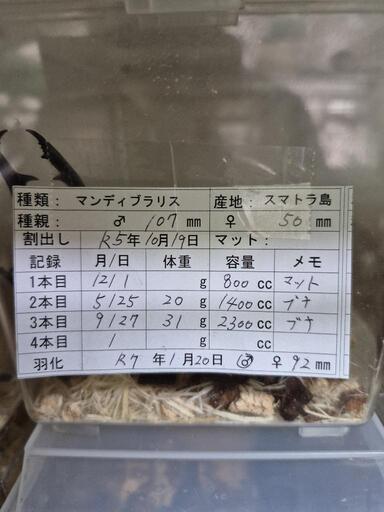 種類： マンディブラリス 産地： スマトラ島
種親： ♂ 107 mm ♀ 50 mm
割出し R5年10月19日 マット：
記録 月/日 体重 容量 メモ
1本目 12/1 g 800 cc マット
2本目 5/25 20 g 1400 cc ブナ
3本目 9/27 31 g 2300 cc ブナ
4本目 / g cc
羽化 R7 年1月20日 ♂ ♀ 92 mm